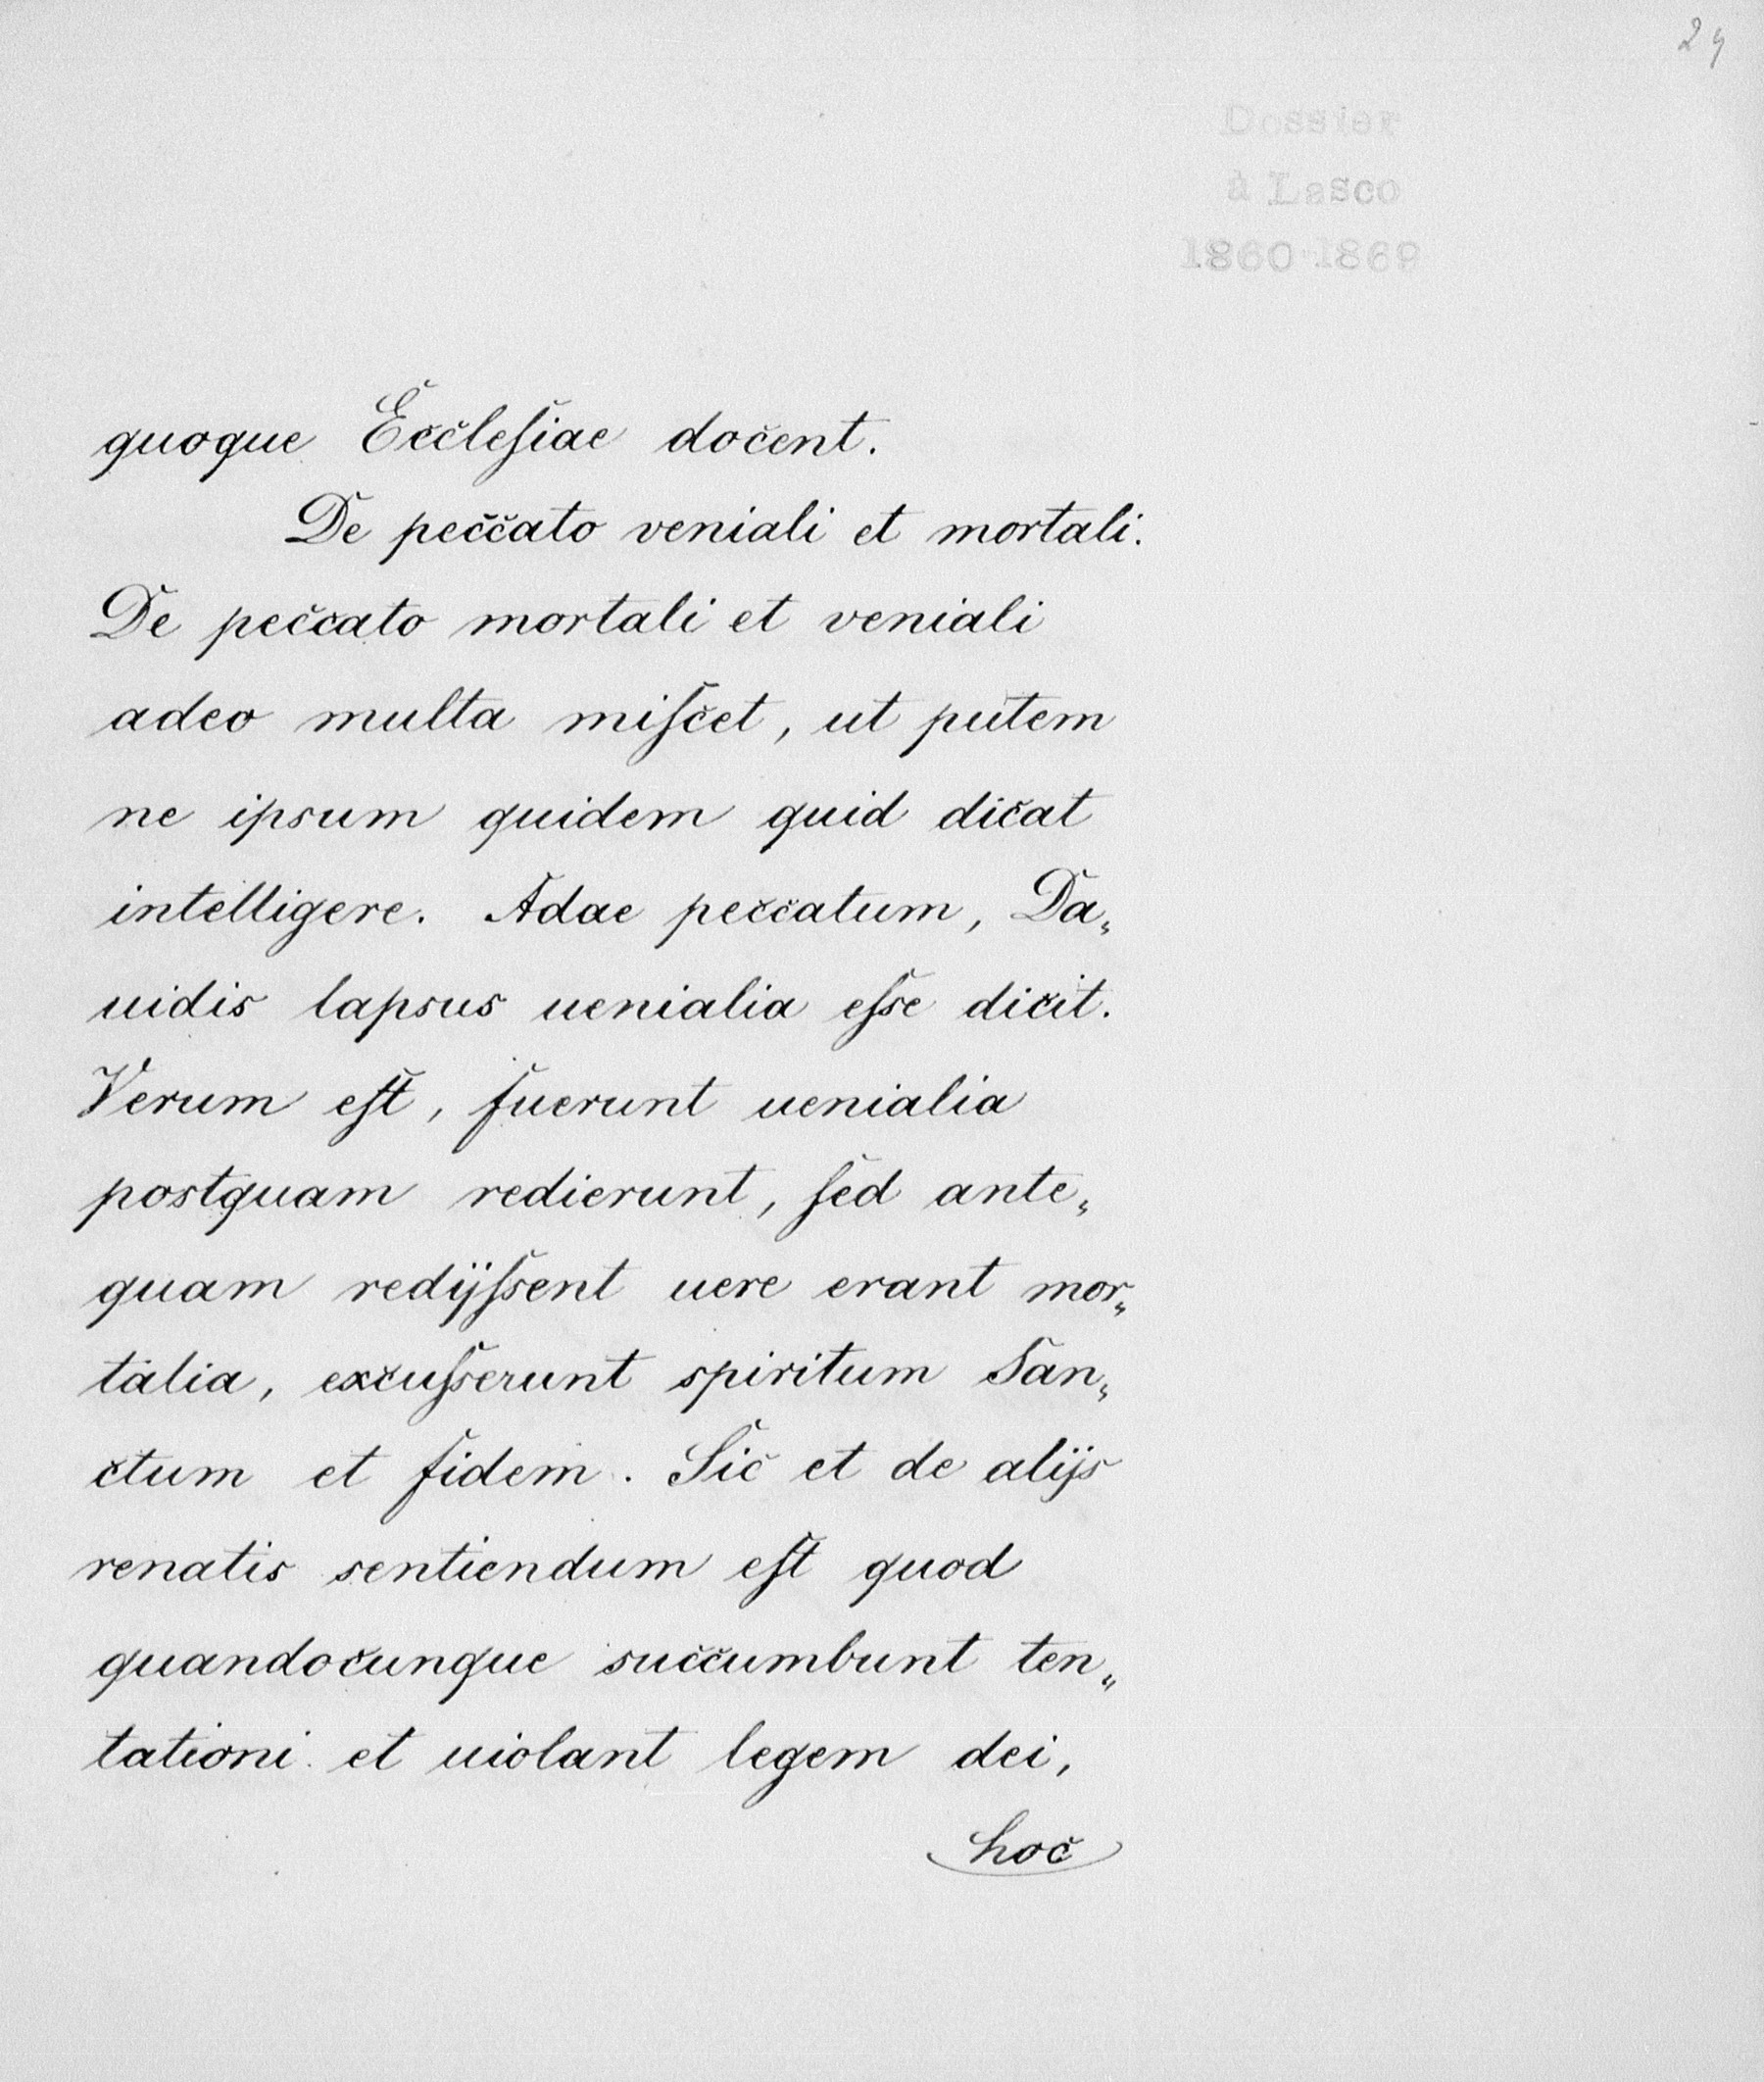 24
Dossier
à Lasco
1860-1869
quoque Ecclesiae docent.
De peccato veniali et mortali.
De peccato mortali et veniali
adeo multa miſcet, ut putem
ne ipsum quidem quid dicat
intelligere. Adae peccatum, Da„
uidis lapsus uenialia eſse dicit.
Verum eſt, fuerunt uenialia
postquam redierunt, ſed ante„
quam redijſsent uere erant mor„
talia, excuſserunt spiritum San„
ctum et fidem. Sic et de alijs
renatis sentiendum eſt quod
quandocunque succumbunt ten„
tationi et uiolant legem dei,
hoc